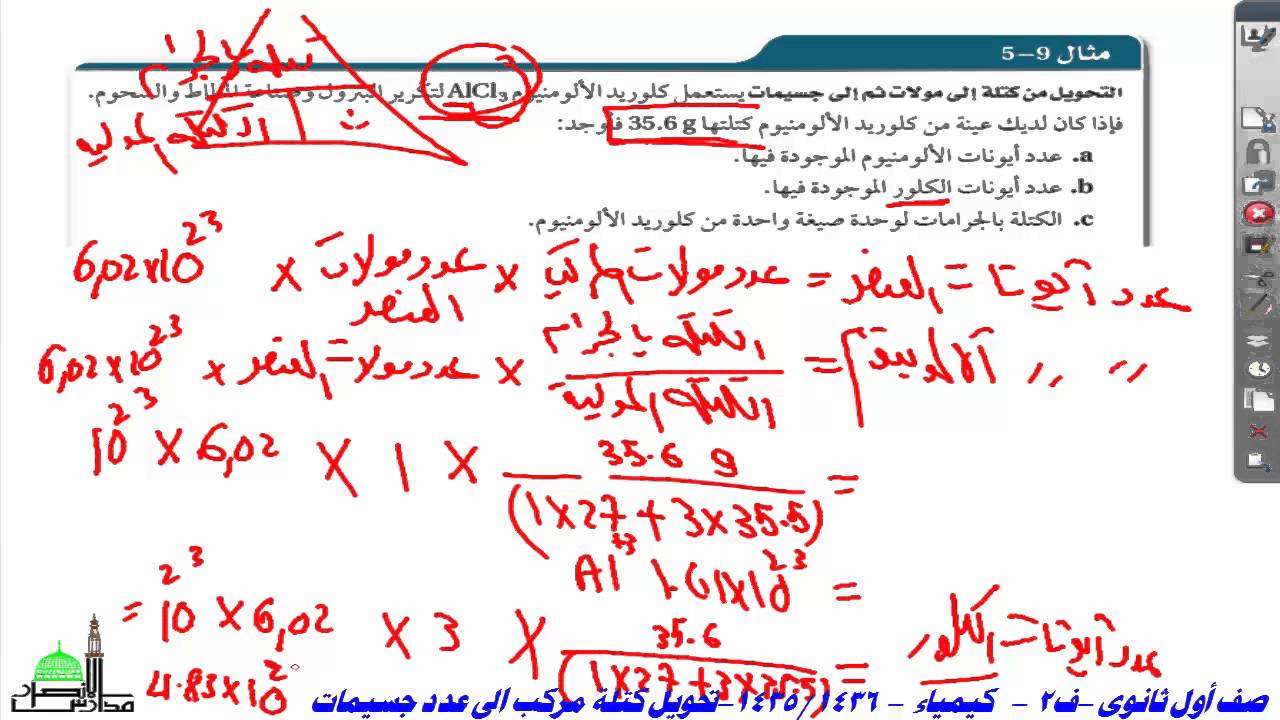 مثال 9–5
التحويل من كتلة إلى مولات ثم إلى جسيمات يستعمل كلوريد الألومنيوم AlCl₃ لتكرير البترول وصناعة المطاط والشحوم.
فإذا كان لديك عينة من كلوريد الألومنيوم كتلتها 35.6 g فأوجد:
a. عدد أيونات الألومنيوم الموجودة فيها.
b. عدد أيونات الكلور الموجودة فيها.
c. الكتلة بالجرامات لوحدة صيغة واحدة من كلوريد الألومنيوم.
كتلة بالجرام
الكتلة المولية ث
عدد أيونات العنصر = عدد مولات المركب × عدد مولات العنصر × 6,02×10²³
〃 〃 = الكتلة بالجرام / الكتلة المولية × عدد مولات العنصر × 6,02×10²³
= 35.6 g / (1×27+3×35.5) × 1 × 6,02 × 10²³
= 1.61×10²³ Al⁺³
عدد أيونات الكلور = 35.6 / (1×27+3×35.5) × 3 × 6,02 × 10²³ =
4.83×10²
مدارس الأنصار
صف أول ثانوى - ف٢ - كيمياء - ١٤٣٥/١٤٣٦-تحويل كتلة مركب الى عدد جسيمات